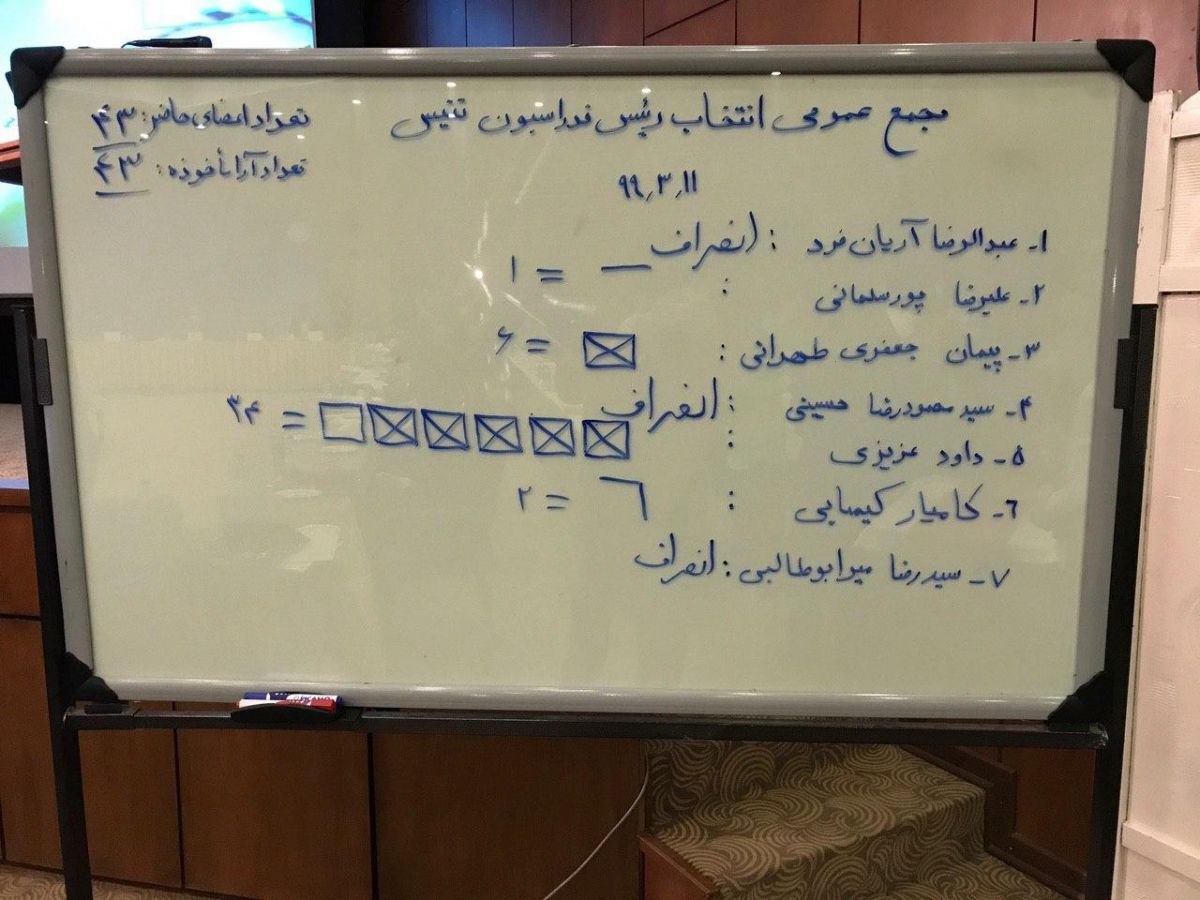 مجمع عمومی انتخاب رئیس فدراسیون تنیس
۹۹٫۳٫۱۱
تعداد اعضای حاضر: ۴۳
تعداد آرا مأخوذه: ۴۳
۱- عبدالرضا آریان فرد : انصراف
۲- علیرضا پورسلمانی : = ۱
۳- پیمان جعفری طهرانی : = ۶
۴- سید محمودرضا حسینی : انصراف
۵- داود عزیزی : = ۳۴
۶- کامیار کیمیایی : = ۲
۷- سیدرضا میرابوطالبی : انصراف